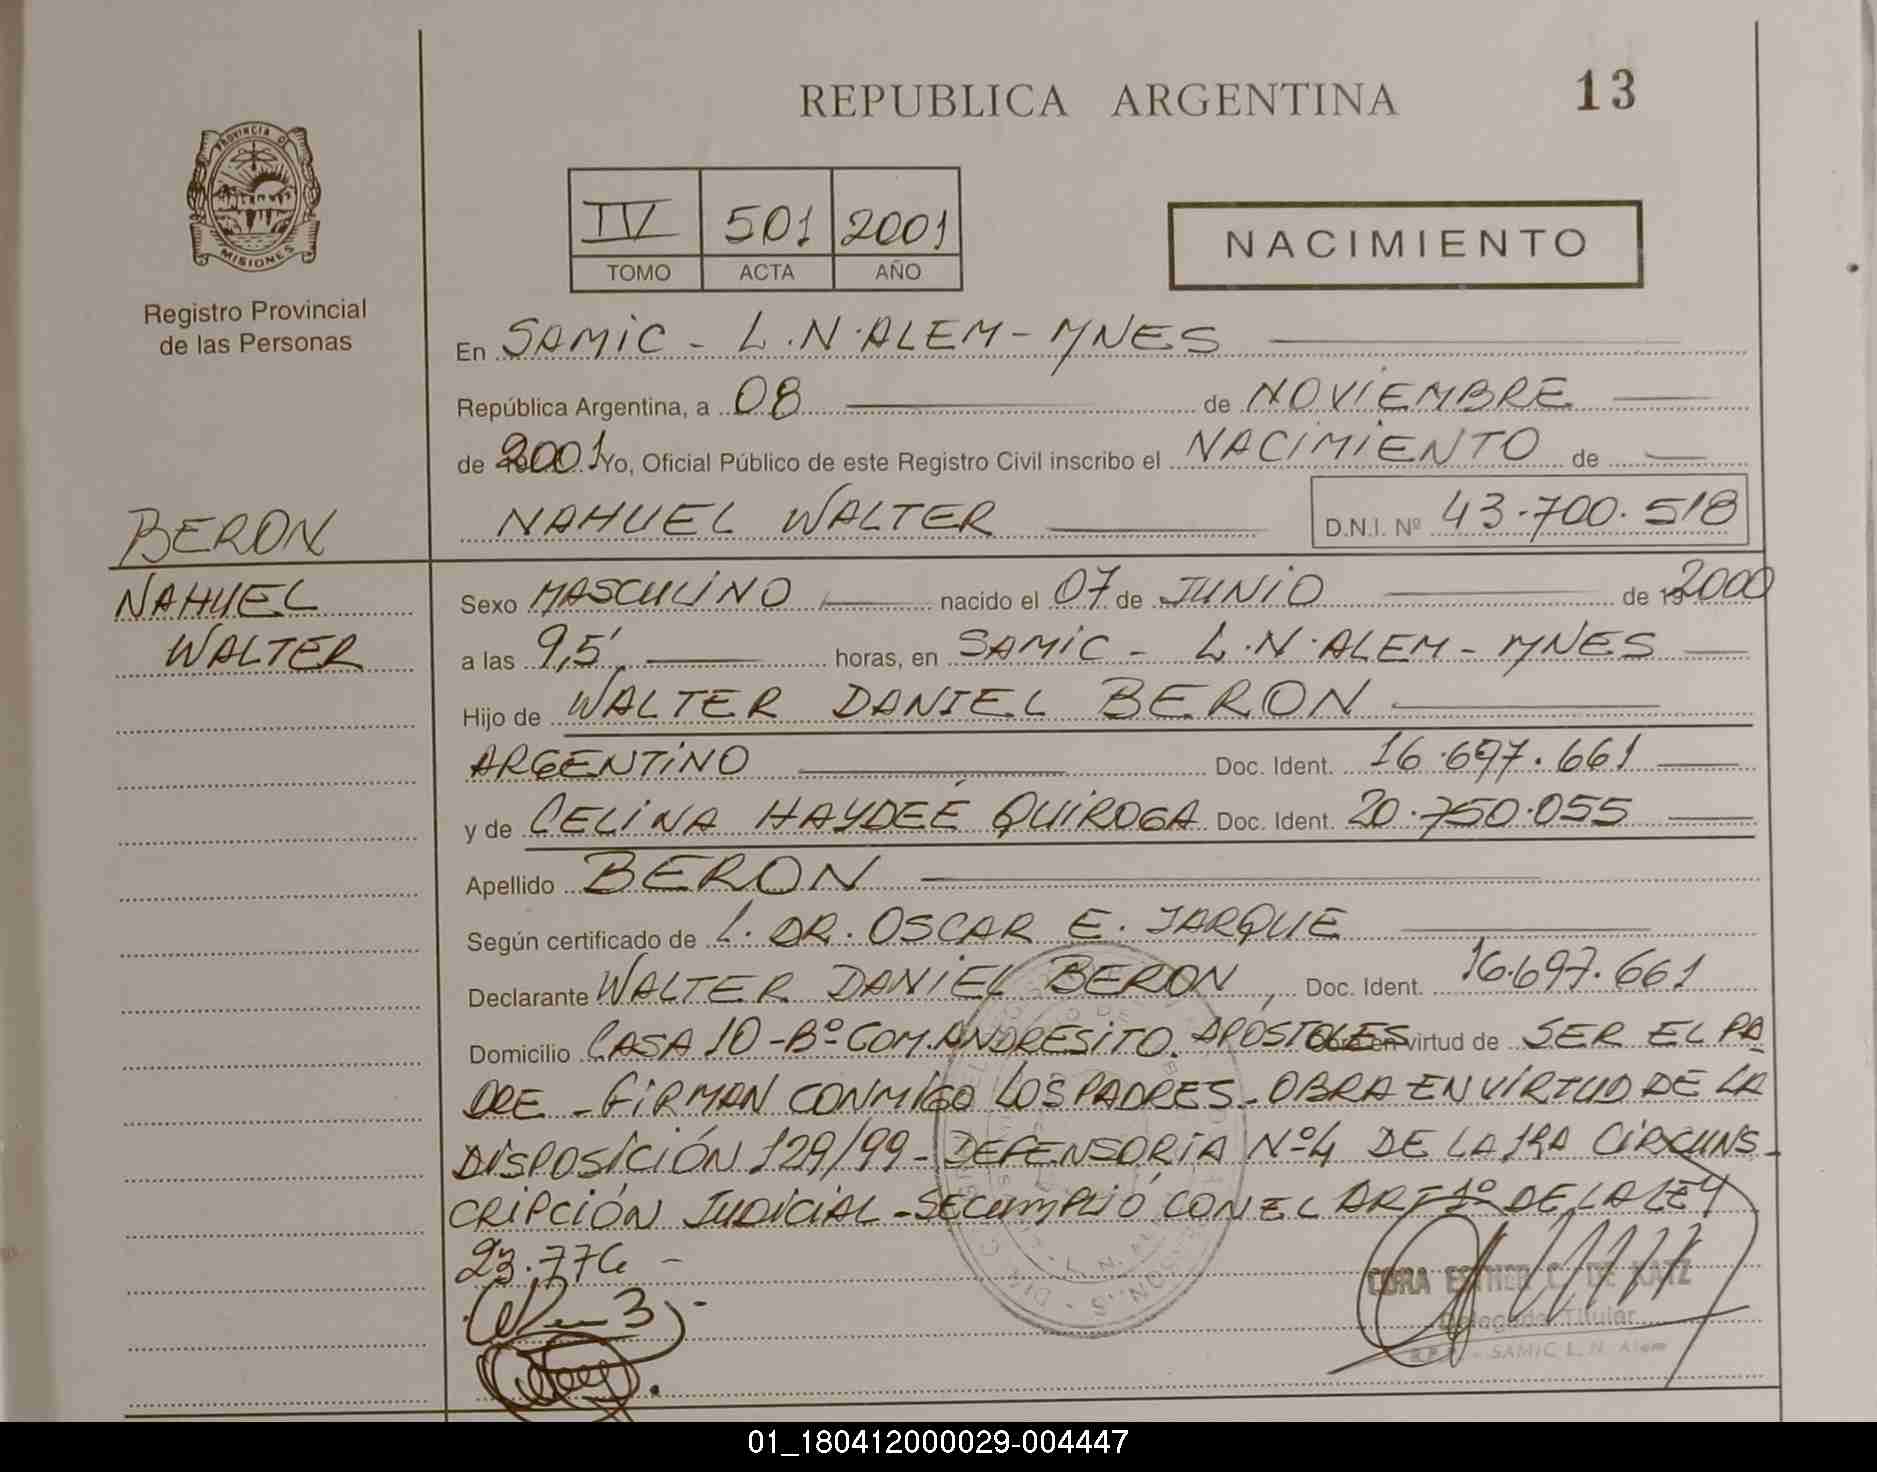 REPUBLICA ARGENTINA
13
PROVINCIA DE
MISIONES
Registro Provincial
de las Personas
IV 501 2001
TOMO ACTA AÑO
NACIMIENTO
En SAMIC - L.N. ALEM - MNES
República Argentina, a 08 de NOVIEMBRE
de 2001 Yo, Oficial Público de este Registro Civil inscribo el NACIMIENTO de
NAHUEL WALTER D.N.I. Nº 43.700.518
BERON
NAHUEL
WALTER
Sexo MASCULINO nacido el 07 de JUNIO de 2000
a las 9,5' horas, en SAMIC - L.N. ALEM - MNES
Hijo de WALTER DANIEL BERON
ARGENTINO Doc. Ident. 16.697.661
y de CELINA HAYDEÉ QUIROGA Doc. Ident. 20.750.055
Apellido BERON
Según certificado de DR. OSCAR E. JARQUE
Declarante WALTER DANIEL BERON, Doc. Ident. 16.697.661
Domicilio CASA 10 - Bº COM. ANDRESITO. APÓSTOLES Obra en virtud de SER EL PA
DRE - FIRMAN CONMIGO LOS PADRES - OBRA EN VIRTUD DE LA
DISPOSICIÓN 129/99 - DEFENSORÍA Nº 4 DE LA 1RA CIRCUNS-
CRIPCIÓN JUDICIAL - SE CUMPLIÓ CON EL ART 1º DE LA LEY
23.776 -
CORA ESTHER C. DE KATZ
Delegada Titular
R.P.P. - SAMIC L.N. Alem
01_180412000029-004447